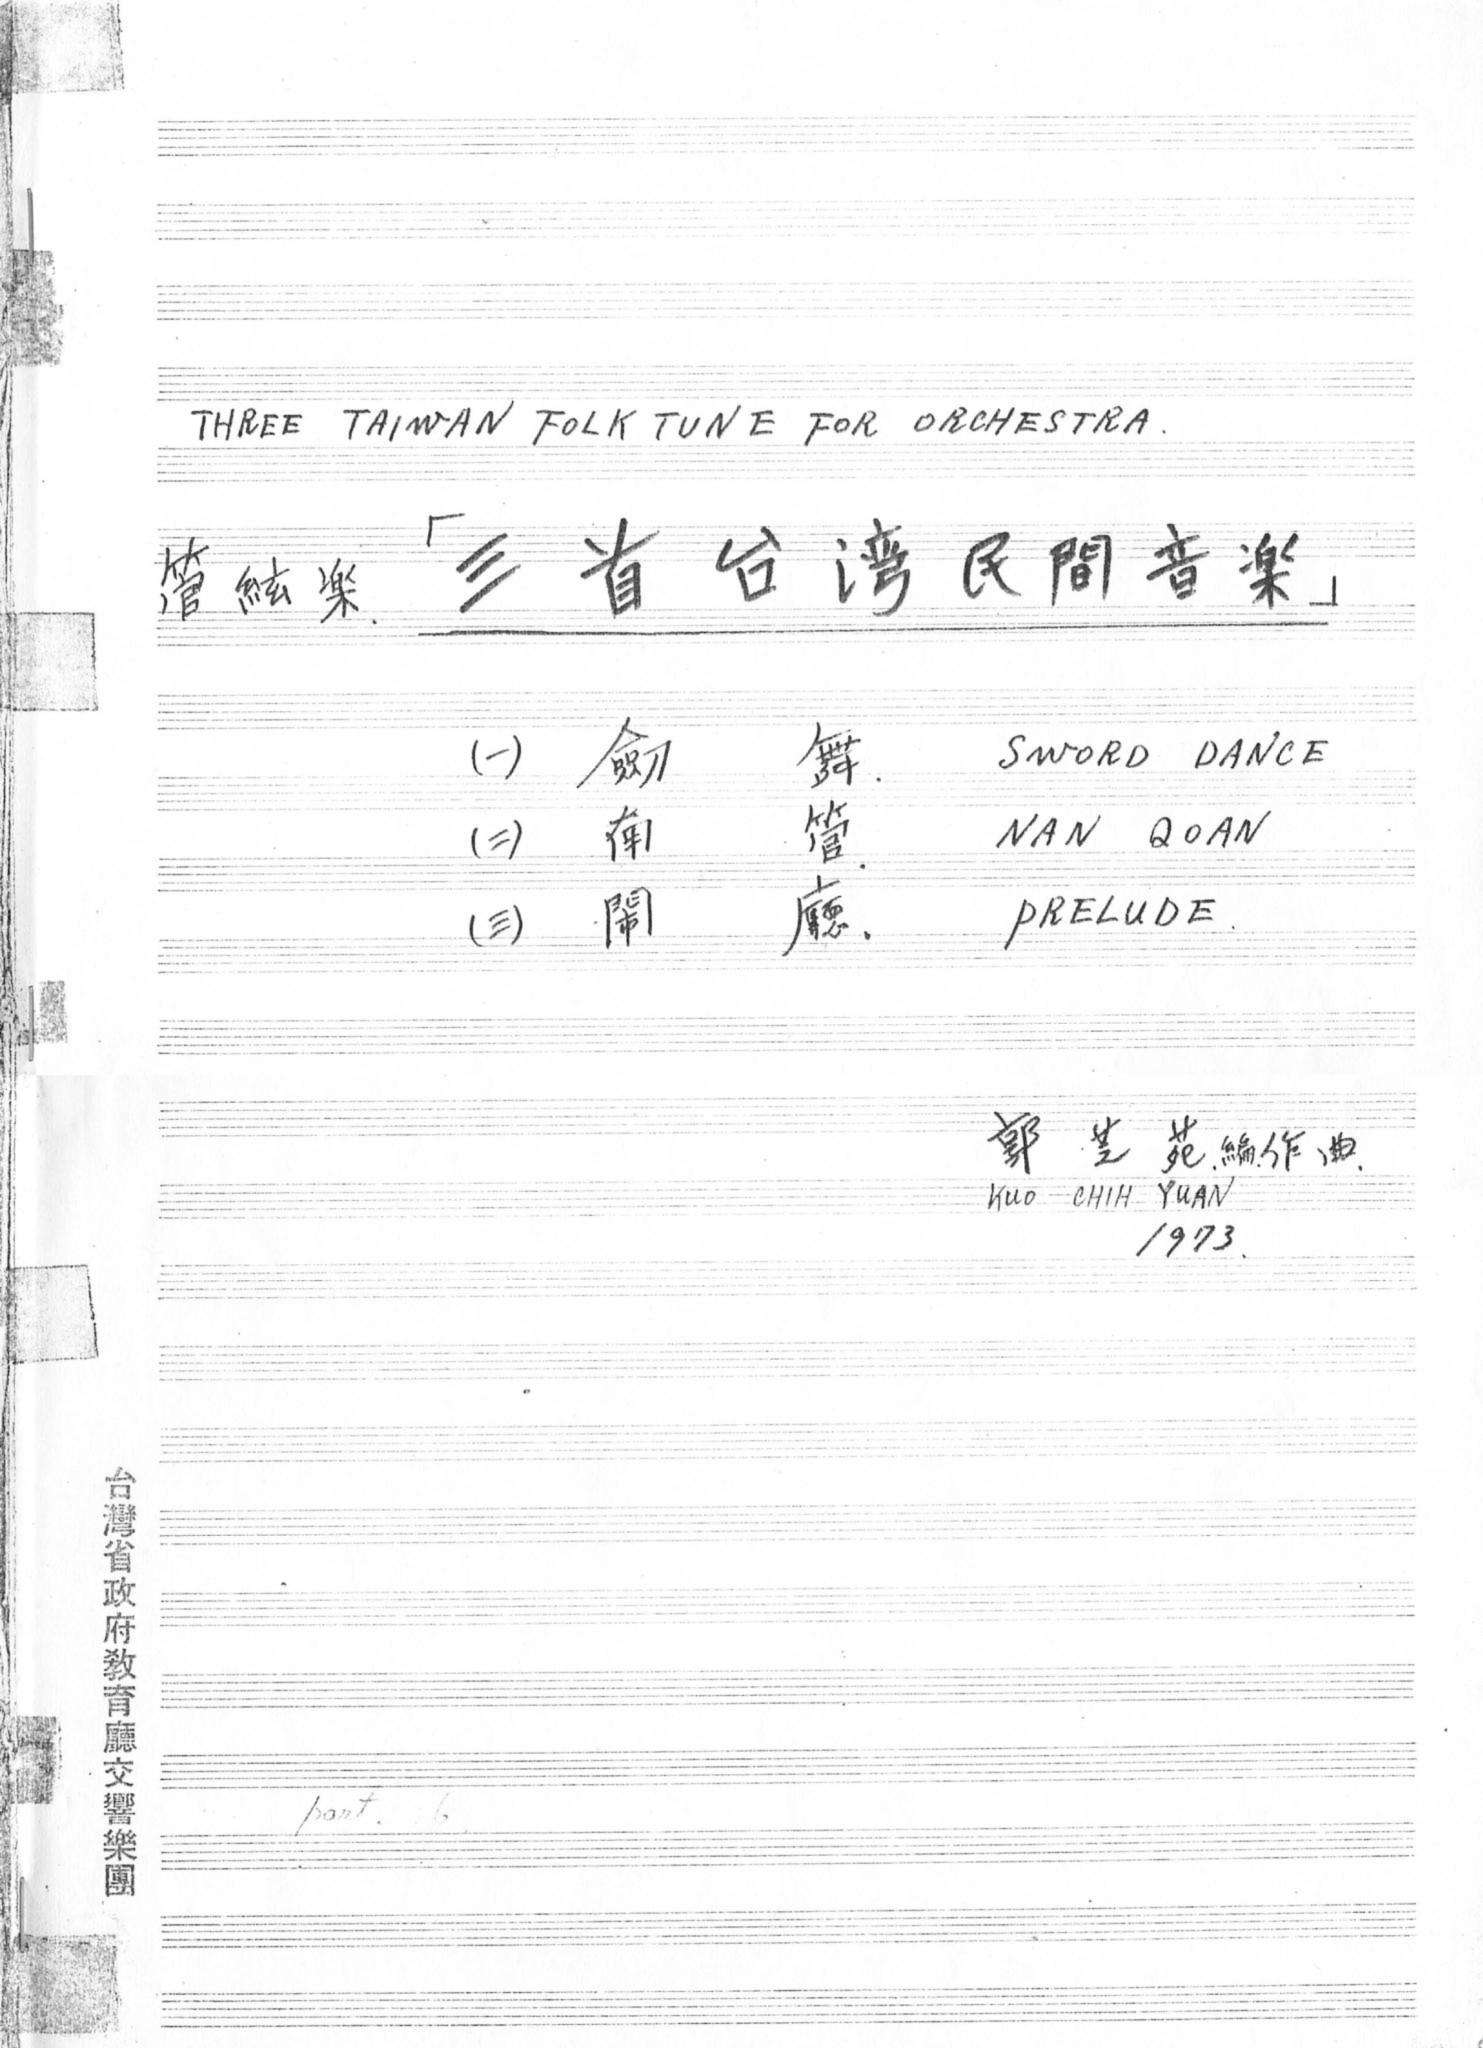 THREE TAIWAN FOLK TUNE FOR ORCHESTRA.
管絃楽.「三省台湾民間音楽」
(一) 劍 舞. SWORD DANCE
(二) 南 管. NAN QOAN
(三) 鬧 廳. PRELUDE.
郭 芝 苑.編作曲.
KUO CHIH YUAN
1973.
台灣省政府教育廳交響樂團
part. 6